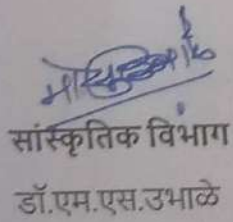 सांस्कृतिक विभाग
डॉ.एम.एस.उभाळे